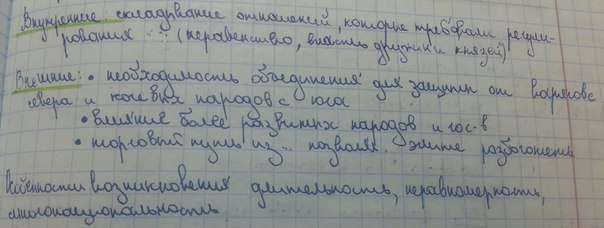 Внутренние складывание отношений, которые требовали регули-
рования (неравенство, власть дружин и князей)
Внешние: • необходимость объединения для защиты от варягов с
севера и кочевых народов с юга
• влияние более развитых народов и гос-в
• торговый путь из... позволял элите разбогатеть
Особенности возникновения длительность, неравномерность,
многонациональность